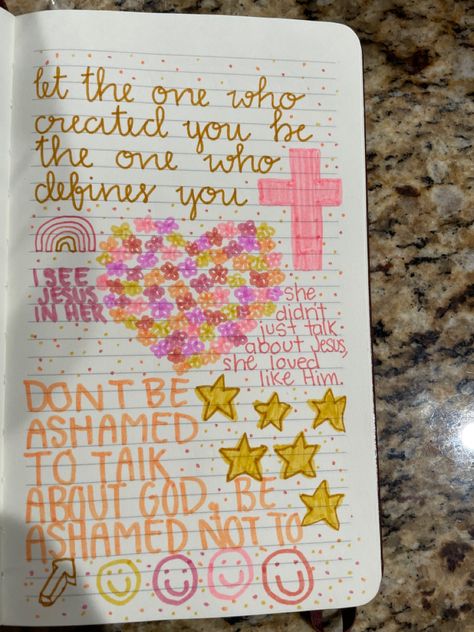 let the one who
created you be
the one who
defines you
I SEE
JESUS
IN HER
she
didn't
just talk
about Jesus,
she loved
like Him.
DONT BE
ASHAMED
TO TALK
ABOUT GOD. BE
ASHAMED NOT TO